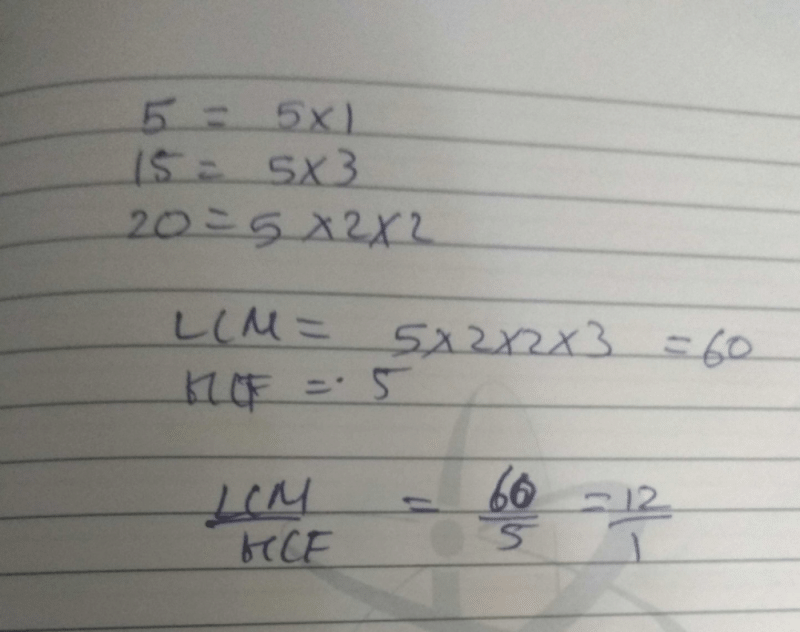 5 = 5×1
15 = 5×3
20 = 5×2×2
LCM = 5×2×2×3 = 60
HCF = 5
LCM/HCF = 60/5 = 12/1